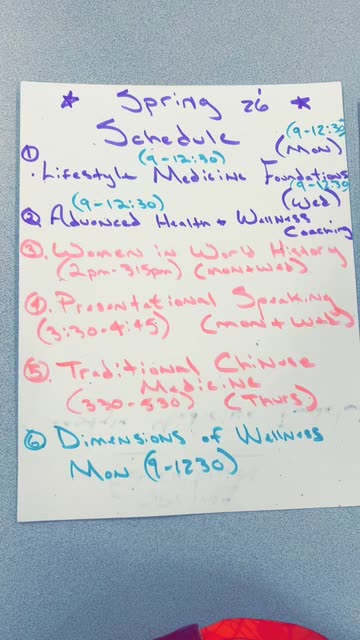 ★ Spring 26 ★
Schedule (9-12:30)
① (9-12:30) (Mon)
. Lifestyle Medicine Foundations
(9-12:30) (9-12:30)
(Wed)
② Advanced Health + Wellness
Coaching
③. Women in World History
(2pm-315pm) (mon+wed)
④. Presentational Speaking
(3:30-4:45) (mon + wed)
⑤. Traditional Chinese
Medicine
(330-530) (Thurs)
⑥ Dimensions of Wellness
Mon (9-1230)